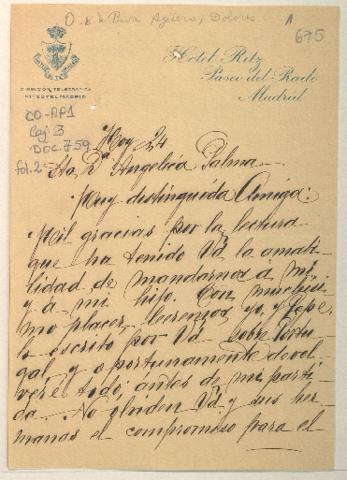 O. de la Riva Agüero, Dolores
A
675
Hotel Ritz
Paseo del Prado
Madrid
DIRECCIÓN TELEGRÁFICA
RITZOTEL MADRID
CO-AP1
Caj. 3
DOC. 759
fol. 2
Hoy 24
Sta. Dª Angélica Palma
Muy distinguida Amiga:
Mil gracias por la lectura
que ha tenido Vd. la amabi
lidad de mandarnos a mí
y a mi hijo. Con muchísi
mo placer, leeremos, yo, y Pepe,
lo escrito por Vd. sobre Portu
gal, y oportunamente devol
veré todo, antes de mi parti
da. No olviden Vd. y sus her
manas el compromiso para el